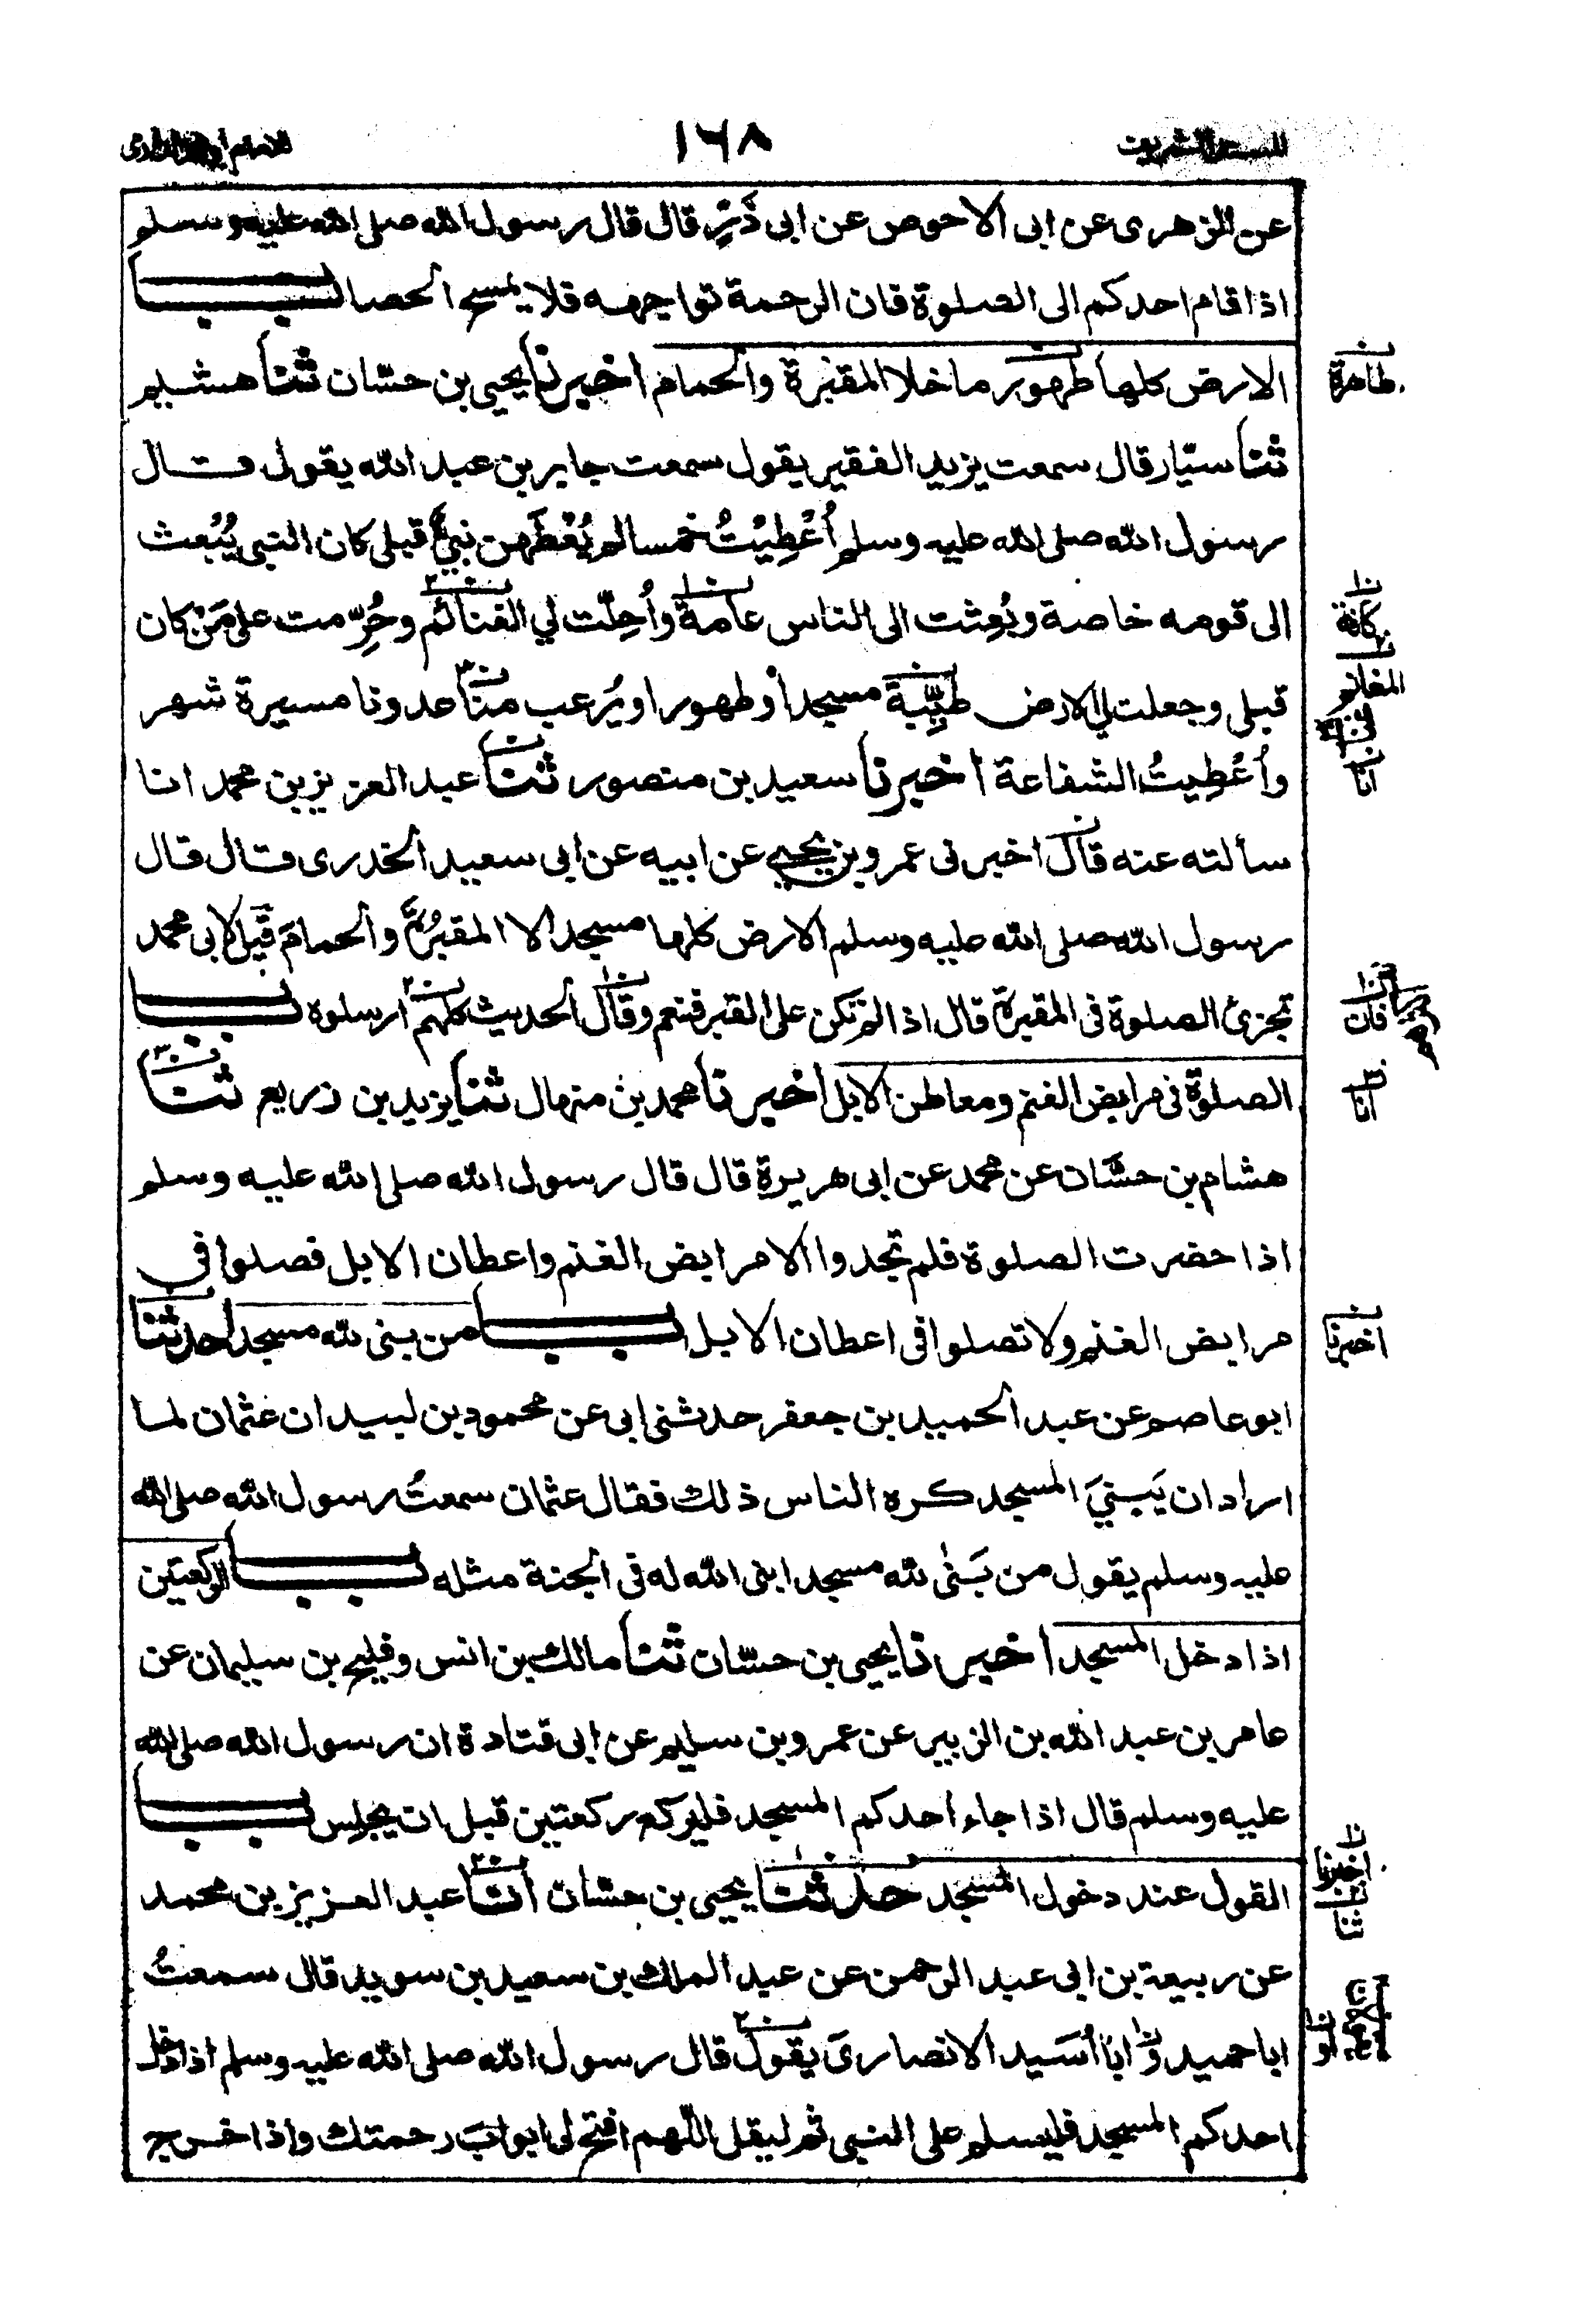 ١٦٨
عن الزهرى عن ابى الاحوص عن ابى ذَرٍّ قال قال رسول الله صلى الله عليه وسلم
اذا قام احدكم الى الصلوة فان الرحمة تواجهه فلا يمسح الحصا باب
الارض كلها طهور ما خلا المقبرة والحمام اخبرنا يحيى بن حسّان ثنا هشيم
طاهرة
ثنا سيّار قال سمعت يزيد الفقير يقول سمعت جابر بن عبد الله يقول قال
رسول الله صلى الله عليه وسلم أُعْطِيْتُ خمسا لم يُعْطَهن نبيٌّ قبلى كان النبى يُبْعث
الى قومه خاصة وبُعِثت الى الناس عامة وأُحِلّت لي الغنائم وحُرِّمت على مَنْ كان
كافة
المغانم
قبلى وجعلت لي الارض طيِّبة مسجدا وطهورا ويُرعب منا عدونا مسيرة شهر
وأُعْطِيتُ الشفاعة اخبرنا سعيد بن منصور ثنا عبد العزيز بن محمد انا
انا
سألته عنه قال اخبرنى عمرو بن يحيى عن ابيه عن ابى سعيد الخدرى قال قال
رسول الله صلى الله عليه وسلم الارض كلها مسجد الا المقبرةَ والحمامَ قيل لابى محمد
تجزئ الصلوة فى المقبرة قال اذا لم تكن على القبر فنعم وقال الحديث كلهم ارسلوه باب
فان
الصلوة فى مرابض الغنم ومعاطن الابل اخبرنا محمد بن منهال ثنا يزيد بن زريع ثنا
انا
هشام بن حسّان عن محمد عن ابى هريرة قال قال رسول الله صلى الله عليه وسلم
اذا حضرت الصلوة فلم تجدوا الا مرابض الغنم واعطان الابل فصلوا في
مرابض الغنم ولا تصلوا فى اعطان الابل باب من بنى لله مسجدا حدثنا
اخبرنا
ابو عاصم عن عبد الحميد بن جعفر حدثنى ابى عن محمود بن لبيد ان عثمان لما
اراد ان يَبنيَ المسجد كره الناس ذلك فقال عثمان سمعتُ رسول الله صلى الله
عليه وسلم يقول من بَنٰى لله مسجدا بنى الله له فى الجنة مثله باب الركعتين
اذا دخل المسجد اخبرنا يحيى بن حسّان ثنا مالك بن انس وفليح بن سليمان عن
عامر بن عبد الله بن الزبير عن عمرو بن سليم عن ابى قتادة ان رسول الله صلى الله
عليه وسلم قال اذا جاء احدكم المسجد فليركع ركعتين قبل ان يجلس باب
القول عند دخول المسجد حدثنا يحيى بن حسّان أنا عبد العزيز بن محمد
اخبرنا
ثنا
عن ربيعة بن ابى عبد الرحمن عن عبد الملك بن سعيد بن سويد قال سمعتُ
ابا حميد و ابا أسَيد الانصارىَ يقول قال رسول الله صلى الله عليه وسلم اذا دخل
او
احدكم المسجد فليسلم على النبى ثم ليقل اللّهم افتح لى ابوابَ رحمتك واذا خرج